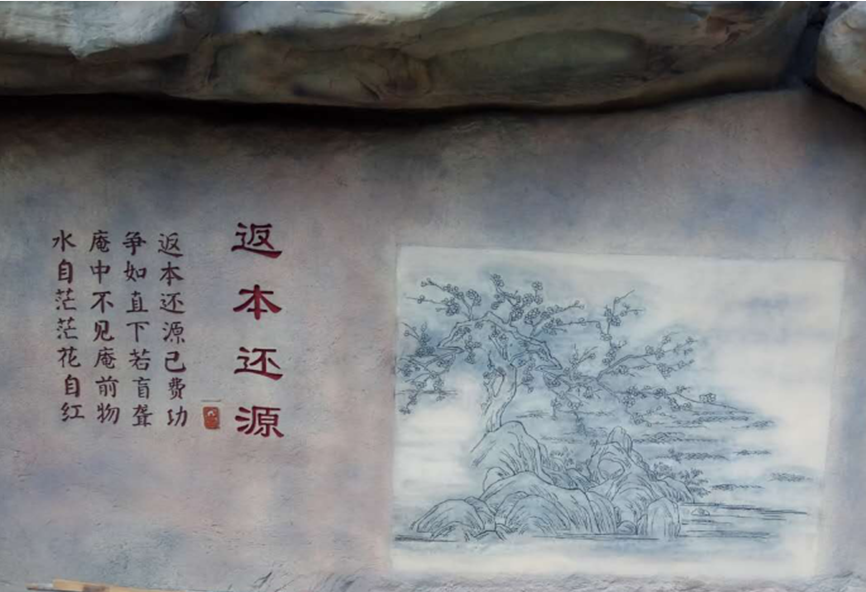 返本还源
返本还源已费功
争如直下若盲聋
庵中不见庵前物
水自茫茫花自红